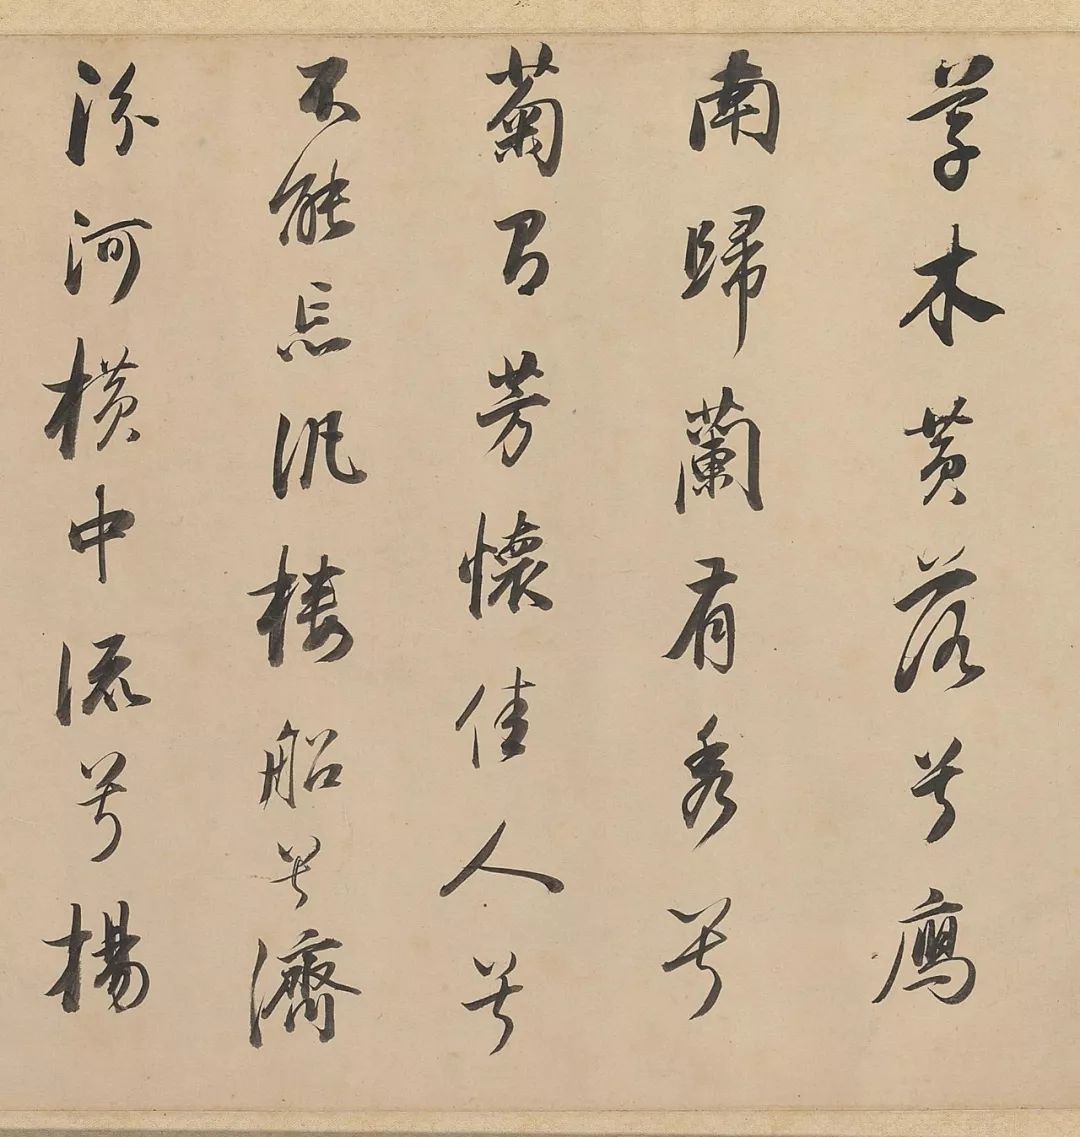 草木黃落兮鴈
南歸蘭有秀兮
菊有芳懷佳人兮
不能忘汎樓船兮濟
汾河橫中流兮揚